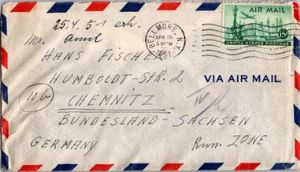 25.4.51 erh.
HANS FISCHER
HUMBOLDT-STR. 2
CHEMNITZ
BUNDESLAND-SACHSEN
GERMANY
Russ. ZONE
BELLMORE, N.Y.
APR 18
1951
AIR MAIL
15¢
UNITED STATES POSTAGE
VIA AIR MAIL